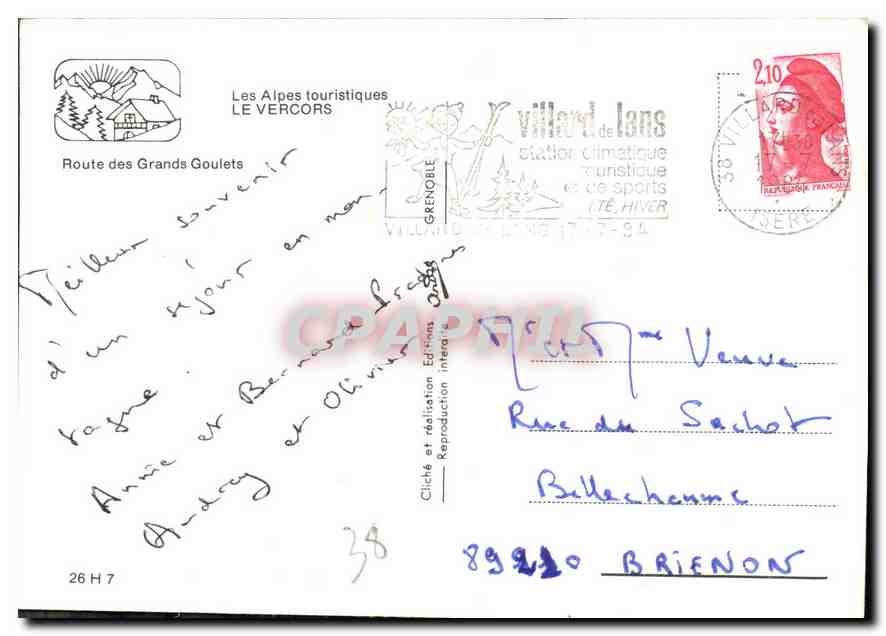 Les Alpes touristiques
LE VERCORS
Route des Grands Goulets
Meilleur souvenir
d'un séjour en mon-
tagne.
Annie et Bernard Prades
Audrey et Olivier
38
26 H 7
GRENOBLE
Cliché et réalisation Editions André
Reproduction interdite
CPAPHIL
villard de lans
station climatique
touristique
et de sports
ÉTÉ, HIVER
VILLARD DE LANS 17-7-84
38 VILLARD
ISERE
2,10
REPUBLIQUE FRANCAISE
Mr et Mme Veuve
Rue du Sachot
Bellechaume
89210 BRIENON